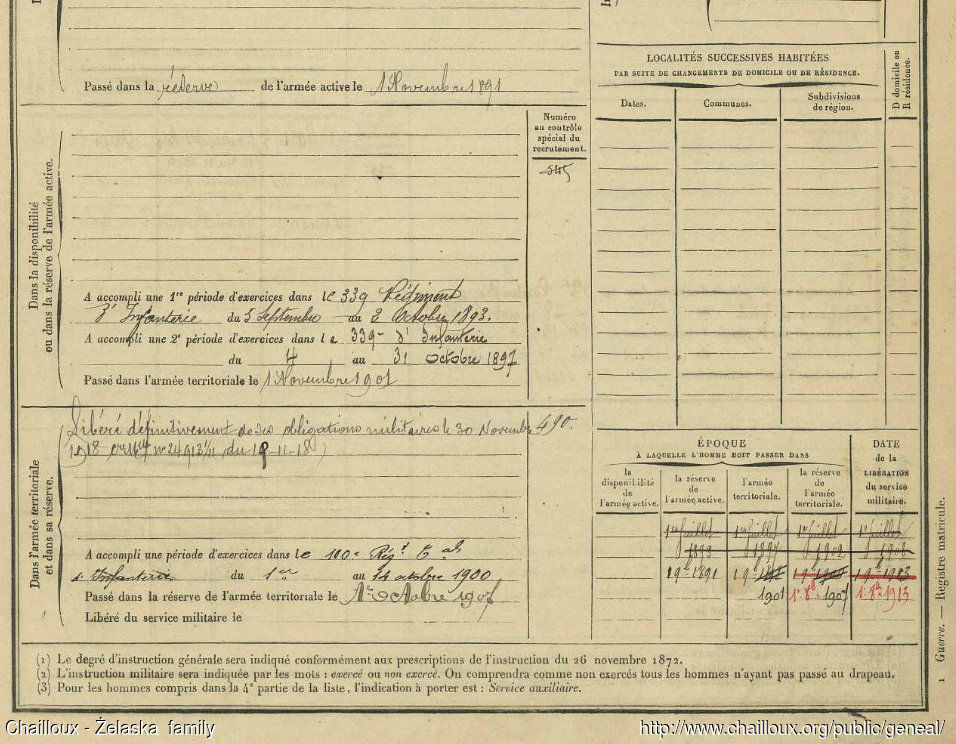 Passé dans la réserve de l'armée active le 1 Novembre 1891
Dans la disponibilité
ou dans la réserve de l'armée active.
Numéro
au contrôle
spécial du
recrutement.
545
A accompli une 1re période d'exercices dans le 339 Régiment
d'Infanterie du 5 Septembre au 2 Octobre 1893.
A accompli une 2e période d'exercices dans le 339e d'Infanterie
du 4 au 31 octobre 1897
Passé dans l'armée territoriale le 1 Novembre 1901
Dans l'armée territoriale
et dans sa réserve.
Libéré définitivement de ses obligations militaires le 30 Novembre
490.
1918
A accompli une période d'exercices dans le 110e Régt Tal
d'Infanterie du 1er au 14 octobre 1900
Passé dans la réserve de l'armée territoriale le 1er octobre 1907
Libéré du service militaire le
LOCALITÉS SUCCESSIVES HABITÉES
PAR SUITE DE CHANGEMENTS DE DOMICILE OU DE RÉSIDENCE.
Dates.
Communes.
Subdivisions
de région.
D domicile ou
R résidence.
ÉPOQUE
À LAQUELLE L'HOMME DOIT PASSER DANS
la
disponibilité
de
l'armée active.
la réserve
de
l'armée active.
l'armée
territoriale.
la réserve
de
l'armée
territoriale.
DATE
de la
LIBÉRATION
du service
militaire.
1er Juillet 1er Juillet 1er Juillet 1er Juillet
1893 1897 1902 1908
1891
1901 1907 1913
Guerre. — Registre matricule.
1
(1) Le degré d'instruction générale sera indiqué conformément aux prescriptions de l'instruction du 26 novembre 1872.
(2) L'instruction militaire sera indiquée par les mots : exercé ou non exercé. On comprendra comme non exercés tous les hommes n'ayant pas passé au drapeau.
(3) Pour les hommes compris dans la 4e partie de la liste, l'indication à porter est : Service auxiliaire.
Chailloux - Żelaska family
http://www.chailloux.org/public/geneal/